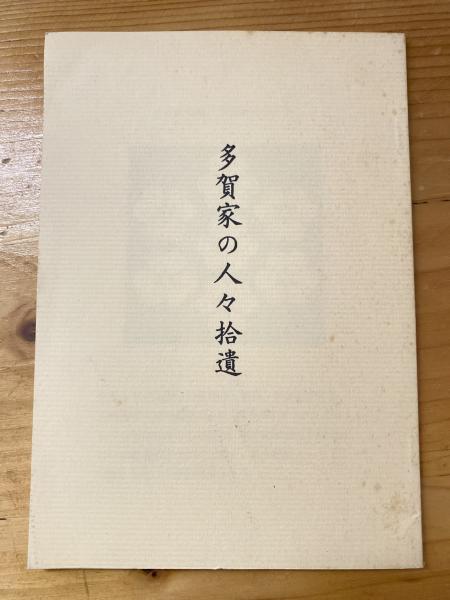 多賀家の人々拾遺